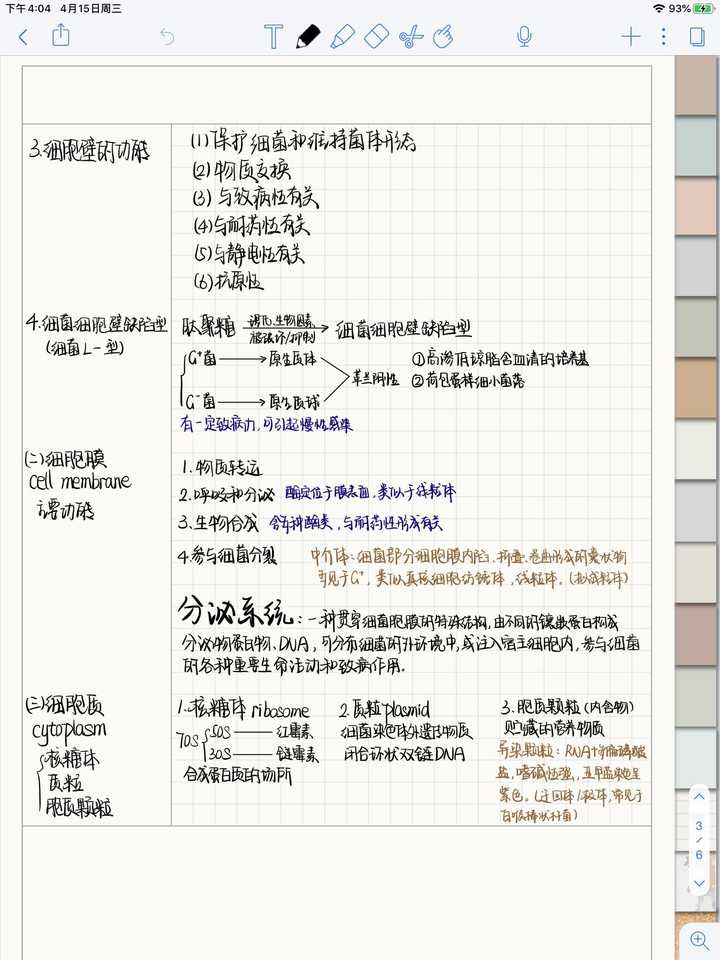 下午4:04 4月15日周三
93%
3.细胞壁的功能
(1)保护细菌和维持菌体形态
(2)物质交换
(3)与致病性有关
(4)与耐药性有关
(5)与静电性有关
(6)抗原性
4.细菌细胞壁缺陷型
(细菌L-型)
肽聚糖 理化.生物因素 被破坏/抑制 细菌细胞壁缺陷型
G⁺菌 原生质体
G⁻菌 原生质球
革兰阴性
①高渗低琼脂含血清的培养基
②荷包蛋样细小菌落
有一定致病力,可引起慢性感染
(二)细胞膜
cell membrane
主要功能
1.物质转运
2.呼吸和分泌 酶定位于膜表面,类似于线粒体
3.生物合成 含多种酶类,与耐药性形成有关
4.参与细菌分裂 中介体:细菌部分细胞膜内陷、折叠、卷曲形成的囊状物
多见于G⁺,类似真核细胞纺锤体、线粒体。(拟线粒体)
分泌系统:一种贯穿细菌胞膜的特殊结构,由不同的镶嵌蛋白构成
分泌物蛋白物、DNA,可分布细菌的外环境中,或注入宿主细胞内,参与细菌
的各种重要生命活动和致病作用.
(三)细胞质
cytoplasm
核糖体
质粒
胞质颗粒
1.核糖体 ribosome
70S 50S 红霉素
30S 链霉素
合成蛋白质的场所
2.质粒 plasmid
细菌染色体外遗传物质
闭合环状双链DNA
3.胞质颗粒(内含物)
贮藏的营养物质
异染颗粒:RNA+偏磷酸
盐,嗜碱性强,亚甲蓝染色呈
紫色。(迂回体/极体,常见于
白喉棒状杆菌)
3
/
6